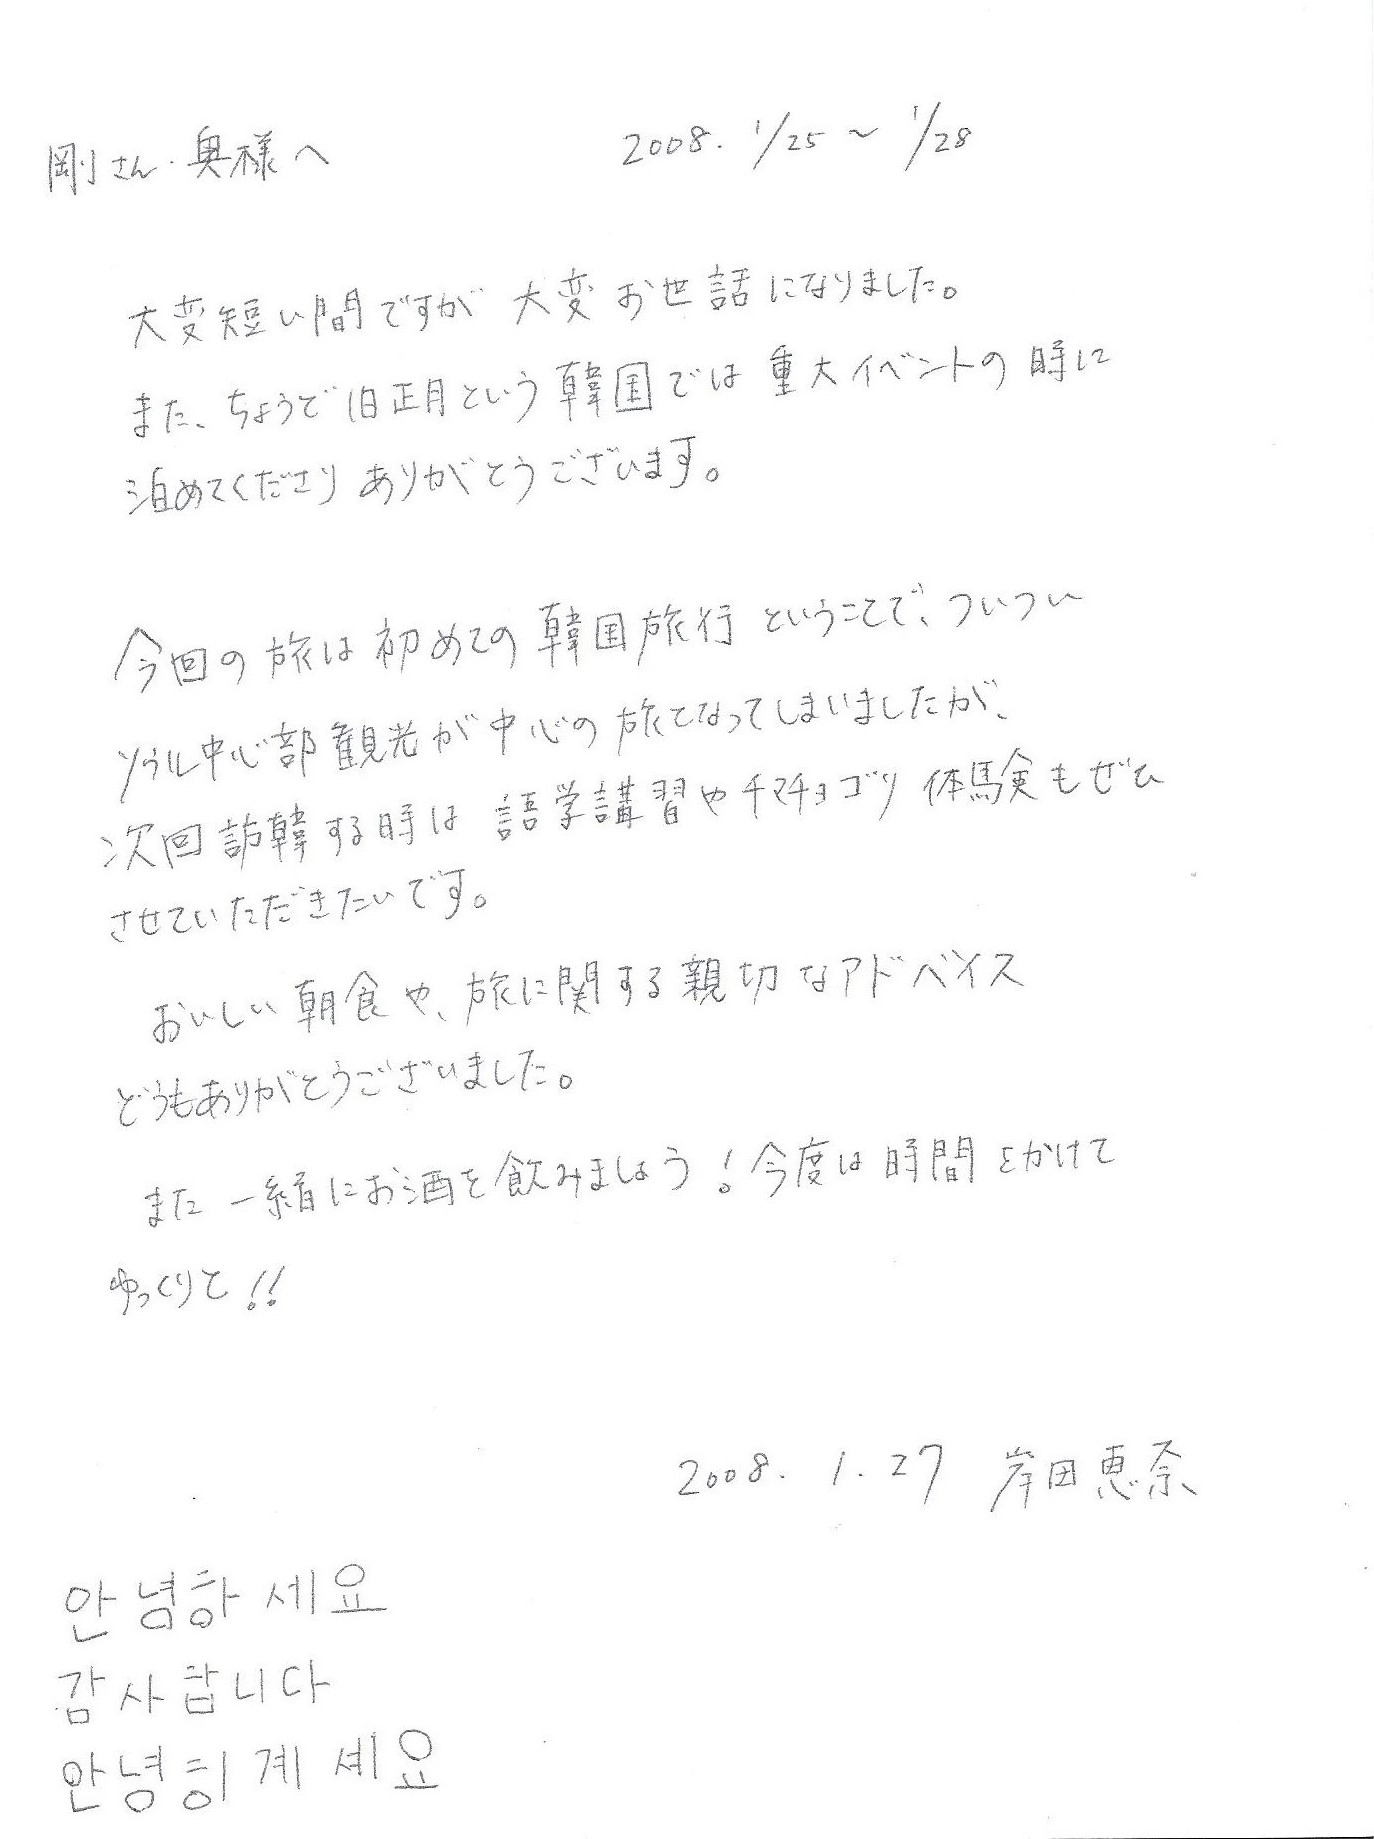 剛さん・奥様へ 2008. 1/25 ~ 1/28
大変短い間ですが 大変お世話になりました。
また、ちょうど旧正月という韓国では重大イベントの時に
泊めてくださりありがとうございます。
今回の旅は初めての韓国旅行ということで、ついつい
ソウル中心部観光が中心の旅となってしまいましたが、
次回訪韓する時は語学講習やチマチョゴリ体験もぜひ
させていただきたいです。
おいしい朝食や、旅に関する親切なアドベイス
どうもありがとうございました。
また一緒にお酒を飲みましょう!今度は時間をかけて
ゆっくりと!!
2008. 1. 27 岸田恵奈
안녕하세요
감사합니다
안녕히계셰요